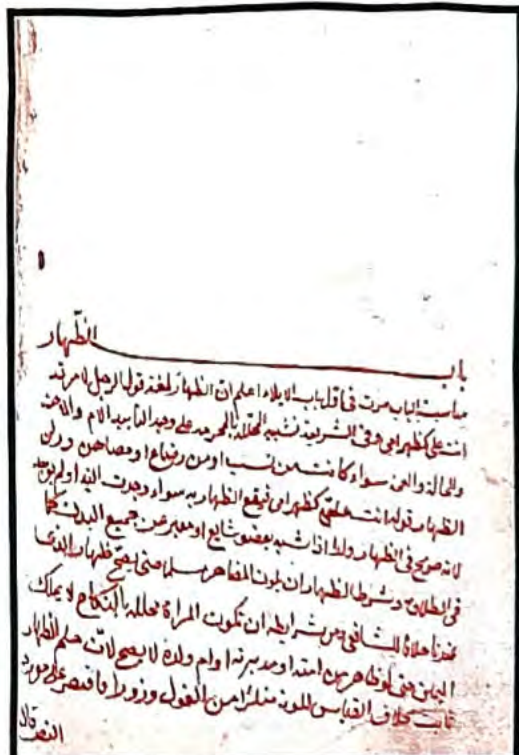 باب الظهار
مناسبة الباب مرت في اول باب الايلاء اعلم ان الظهار لغة قول الرجل لامرته
انت علي كظهر امي وفي الشريعة تشبيه المحللة بالمحرمة على وجه التأبيد الام والاخت
والخالة والعمة سواء كانت من نسب او من رضاع او مصاهرة وركن
الظهار قوله انت علي كظهر امي فيقع الظهار به سواء وجدت النية او لم توجد
لانه صريح في الظهار وكذا اذا شبه بعضو شايع او معبر عن جميع البدن كما
في الطلاق وشرط الظهار ان يكون المظاهر مسلما حتى لا يصح ظهار الذمي
عندنا خلافا للشافعي ومن شرايطه ان تكون المراة محللة بالنكاح لا بملك
اليمين حتى لو ظاهر من امته او مدبرته او ام ولده لا يصح لان حكم الظهار
ثابت بخلاف القياس لكونه منكرا من القول وزورا فاقتصر على مورد
النص قال